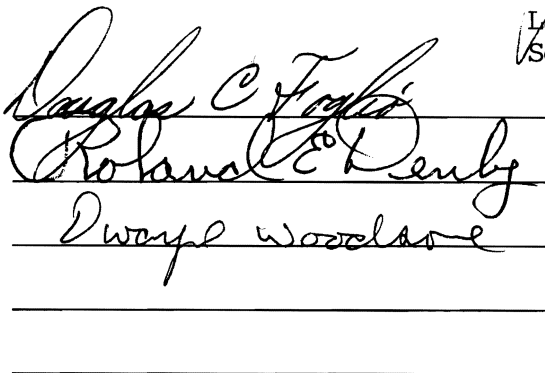 Douglas C Foglio
Roland E Denby
Dwayne Woodsome